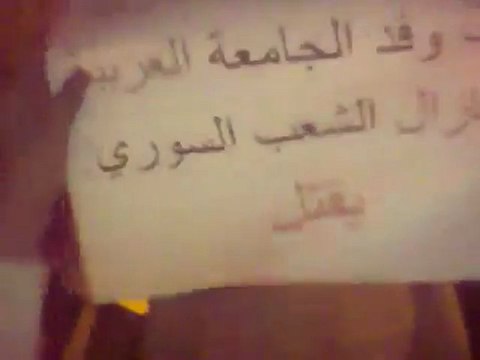 وفد الجامعة العربية
الشعب السوري
يقتل